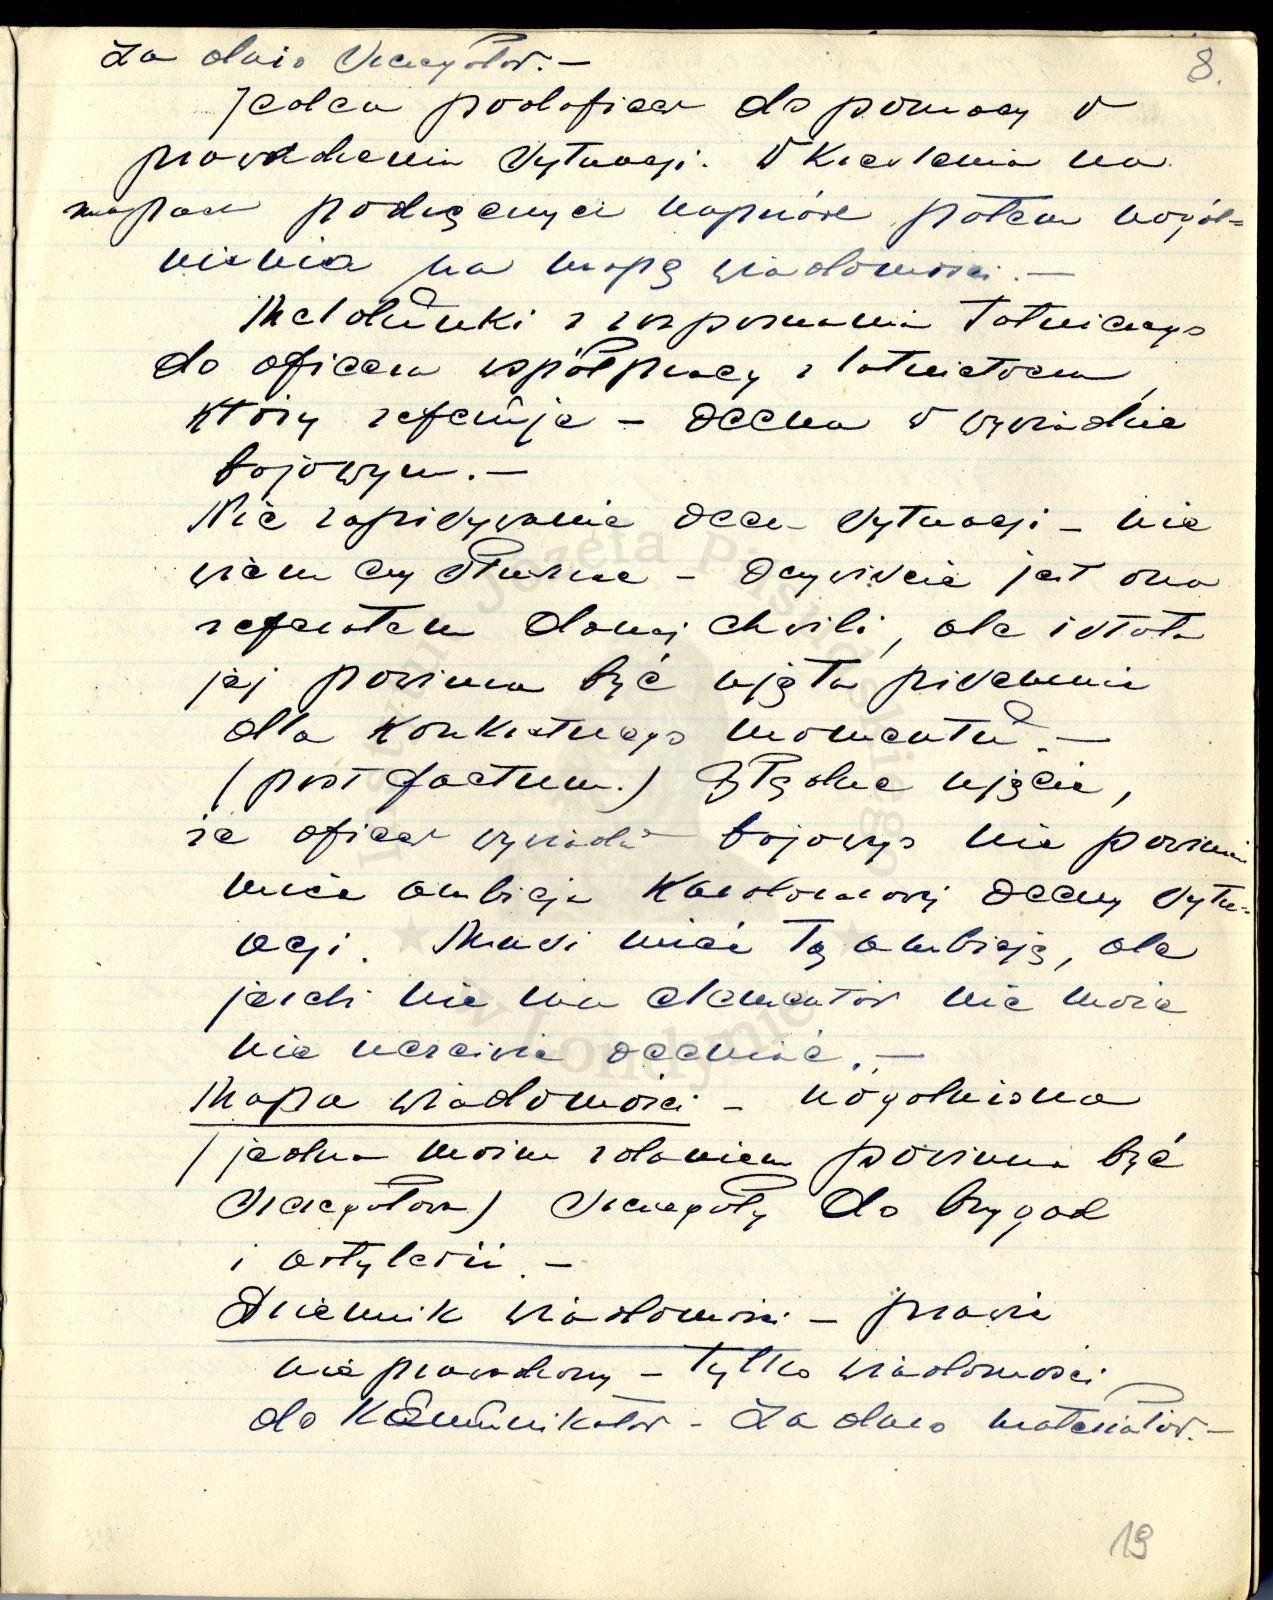 8.
Za dużo szczegółów. –
Jeden podoficer do pomocy w
prowadzeniu sytuacji. Wkreślania na
mapach podręcznych najpierw potem uogól=
nienia na mapę wiadomości. –
Meldunki z rozpoznania lotniczego
do oficera współpracy z lotnictwem,
który referuje – ocena w wywiadzie
bojowym. –
Nie zapisywanie ocen sytuacji – nie
wiem czy słuszne – oczywiście jest ona
referatem danej chwili, ale istota
jej powinna być ujęta pisemnie
dla konkretnego momentu. –
(post factum.) Błędne ujęcie,
że oficer wywiadu bojowego nie powinien
mieć ambicji każdorazowej oceny sytu=
acji. Musi mieć tę ambicję, ale
jeżeli nie ma elementów nie może
nie uczciwie oceniać. –
Mapa wiadomości – uogólniona
(jedna moim zdaniem powinna być
szczegółowa) szczegóły do brygad
i artylerii. –
Dziennik wiadomości – prawie
nie prowadzony – tylko wiadomości
do komunikatów – za dużo materiałów. –
19
Józefa Piłsudskiego
w Londynie